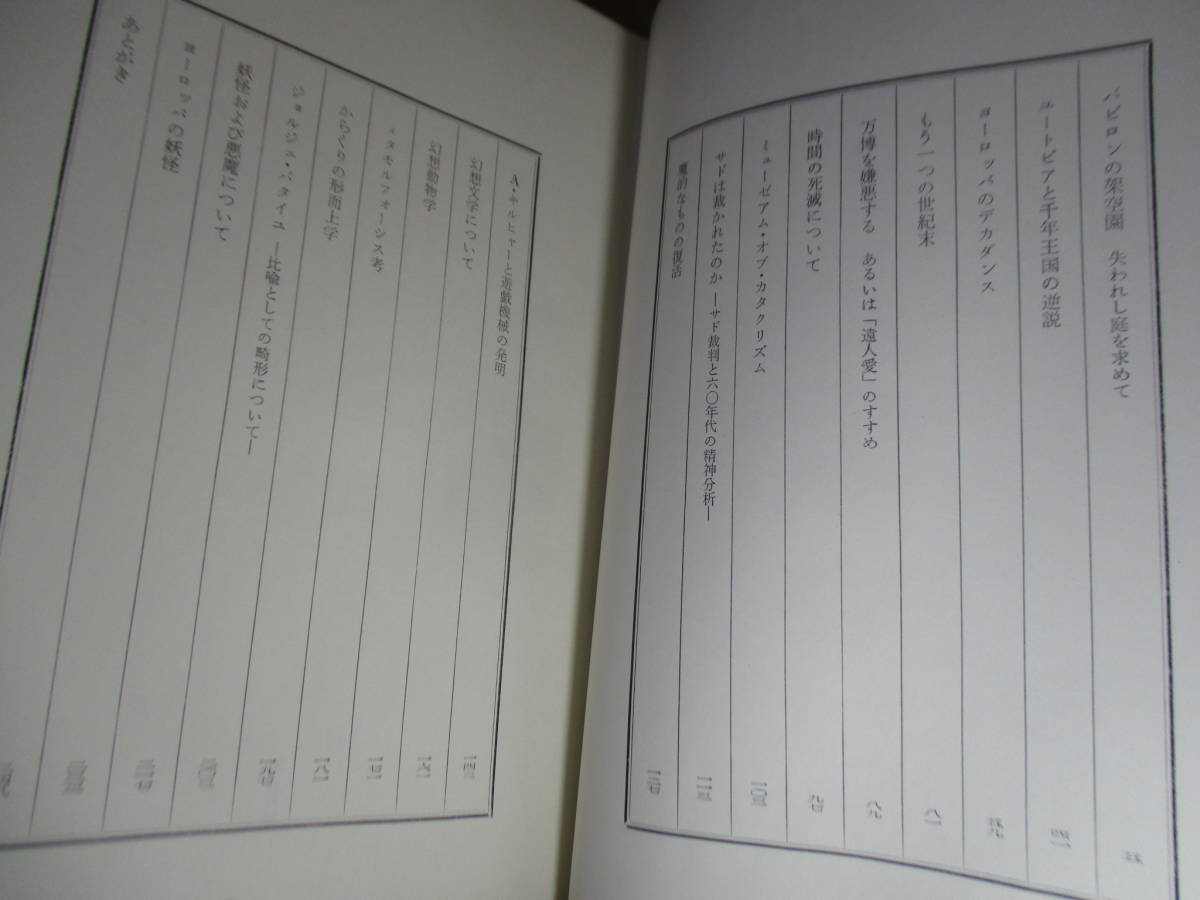 バビロンの架空園　失われし庭を求めて 五
ユートピアと千年王国の逆説 四一
ヨーロッパのデカダンス 五九
もう一つの世紀末 八一
万博を嫌悪する　あるいは「遠人愛」のすすめ 八九
時間の死滅について 九七
ミューゼアム・オブ・カタクリズム 一〇三
サドは裁かれたのか ―サド裁判と六〇年代の精神分析― 一一三
魔的なものの復活 一二七
A・キルヒャーと遊戯機械の発明 一四三
幻想文学について 一六一
幻想動物学 一七一
メタモルフォーシス考 一八一
からくりの形而上学 一九七
ジョルジュ・バタイユ ―比喩としての畸形について― 二〇三
妖怪および悪魔について 二一七
ヨーロッパの妖怪 二三三
あとがき 二四九